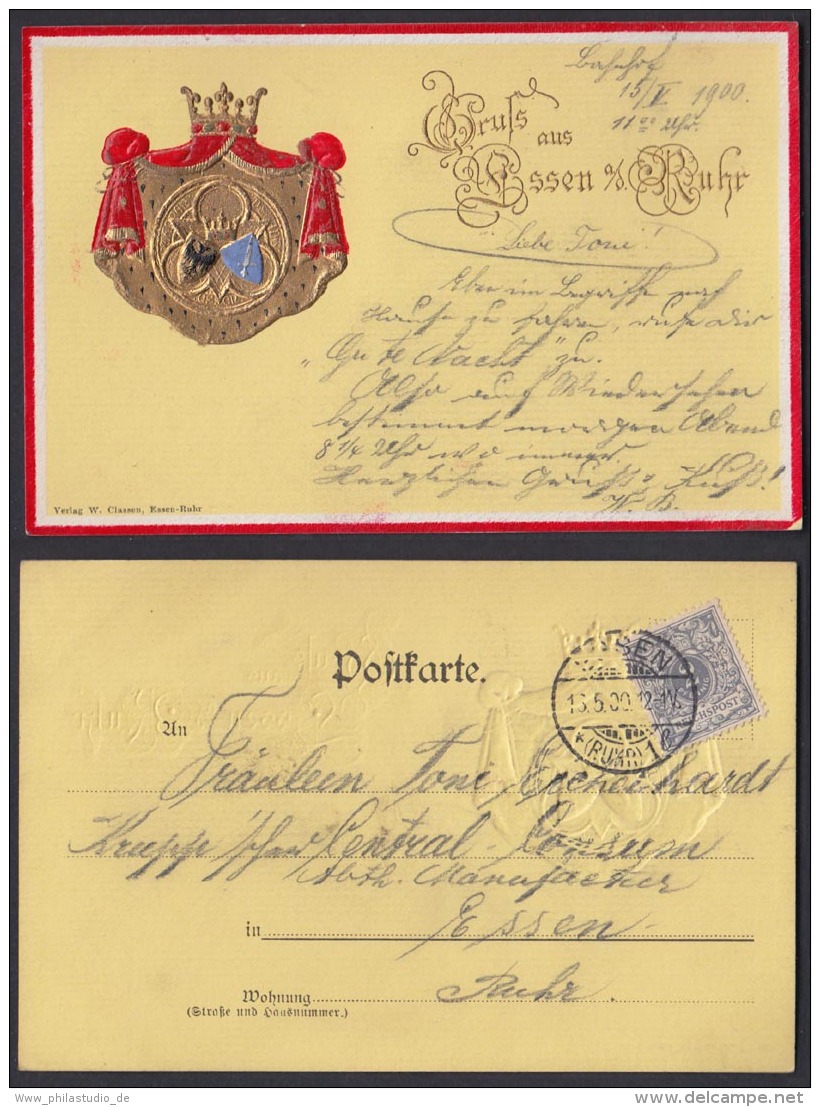 Bahnhof
15/V 1900.
11 00 Uhr.
Gruss
aus
Essen a/d. Ruhr
Liebe Toni!
Eben im Begriffe nach
Hause zu fahren, rufe dir
„Gute Nacht" zu.
Also auf Wiedersehen
bestimmt morgen Abend
8 1/4 Uhr wo immer
Herzlichen Gruß u. Kuß!
W. B.
Verlag W. Classen, Essen-Ruhr
Postkarte.
ESSEN
16.5.00.12-1N.
*(RUHR)1
REICHSPOST
An
Fräulein Toni
Krupp'scher Central-Consum
Abth. Manufactur
in Essen
Ruhr.
Wohnung
(Straße und Hausnummer.)
www.philastudio_de
www.delcampe.net